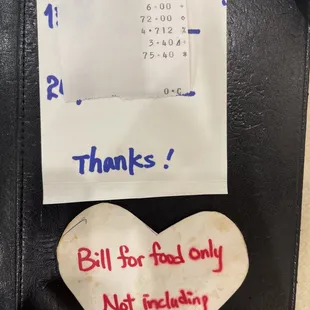 6.00 +
72.00 ◇
4.712 %
3.40 Δ+
75.40 *
0.C
Thanks!
Bill for food only
Not including